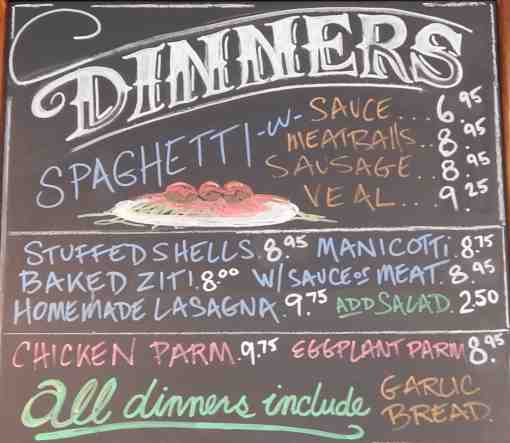 DINNERS
SPAGHETTI -w- SAUCE... 6.95
MEATBALLS.. 8.95
SAUSAGE... 8.95
VEAL... 9.25
STUFFED SHELLS. 8.95 MANICOTTI. 8.75
BAKED ZITI. 8.00 W/ SAUCE OR MEAT. 8.95
HOMEMADE LASAGNA. 9.75 ADD SALAD. 2.50
CHICKEN PARM. 9.75 EGGPLANT PARM 8.95
All dinners include GARLIC
BREAD.